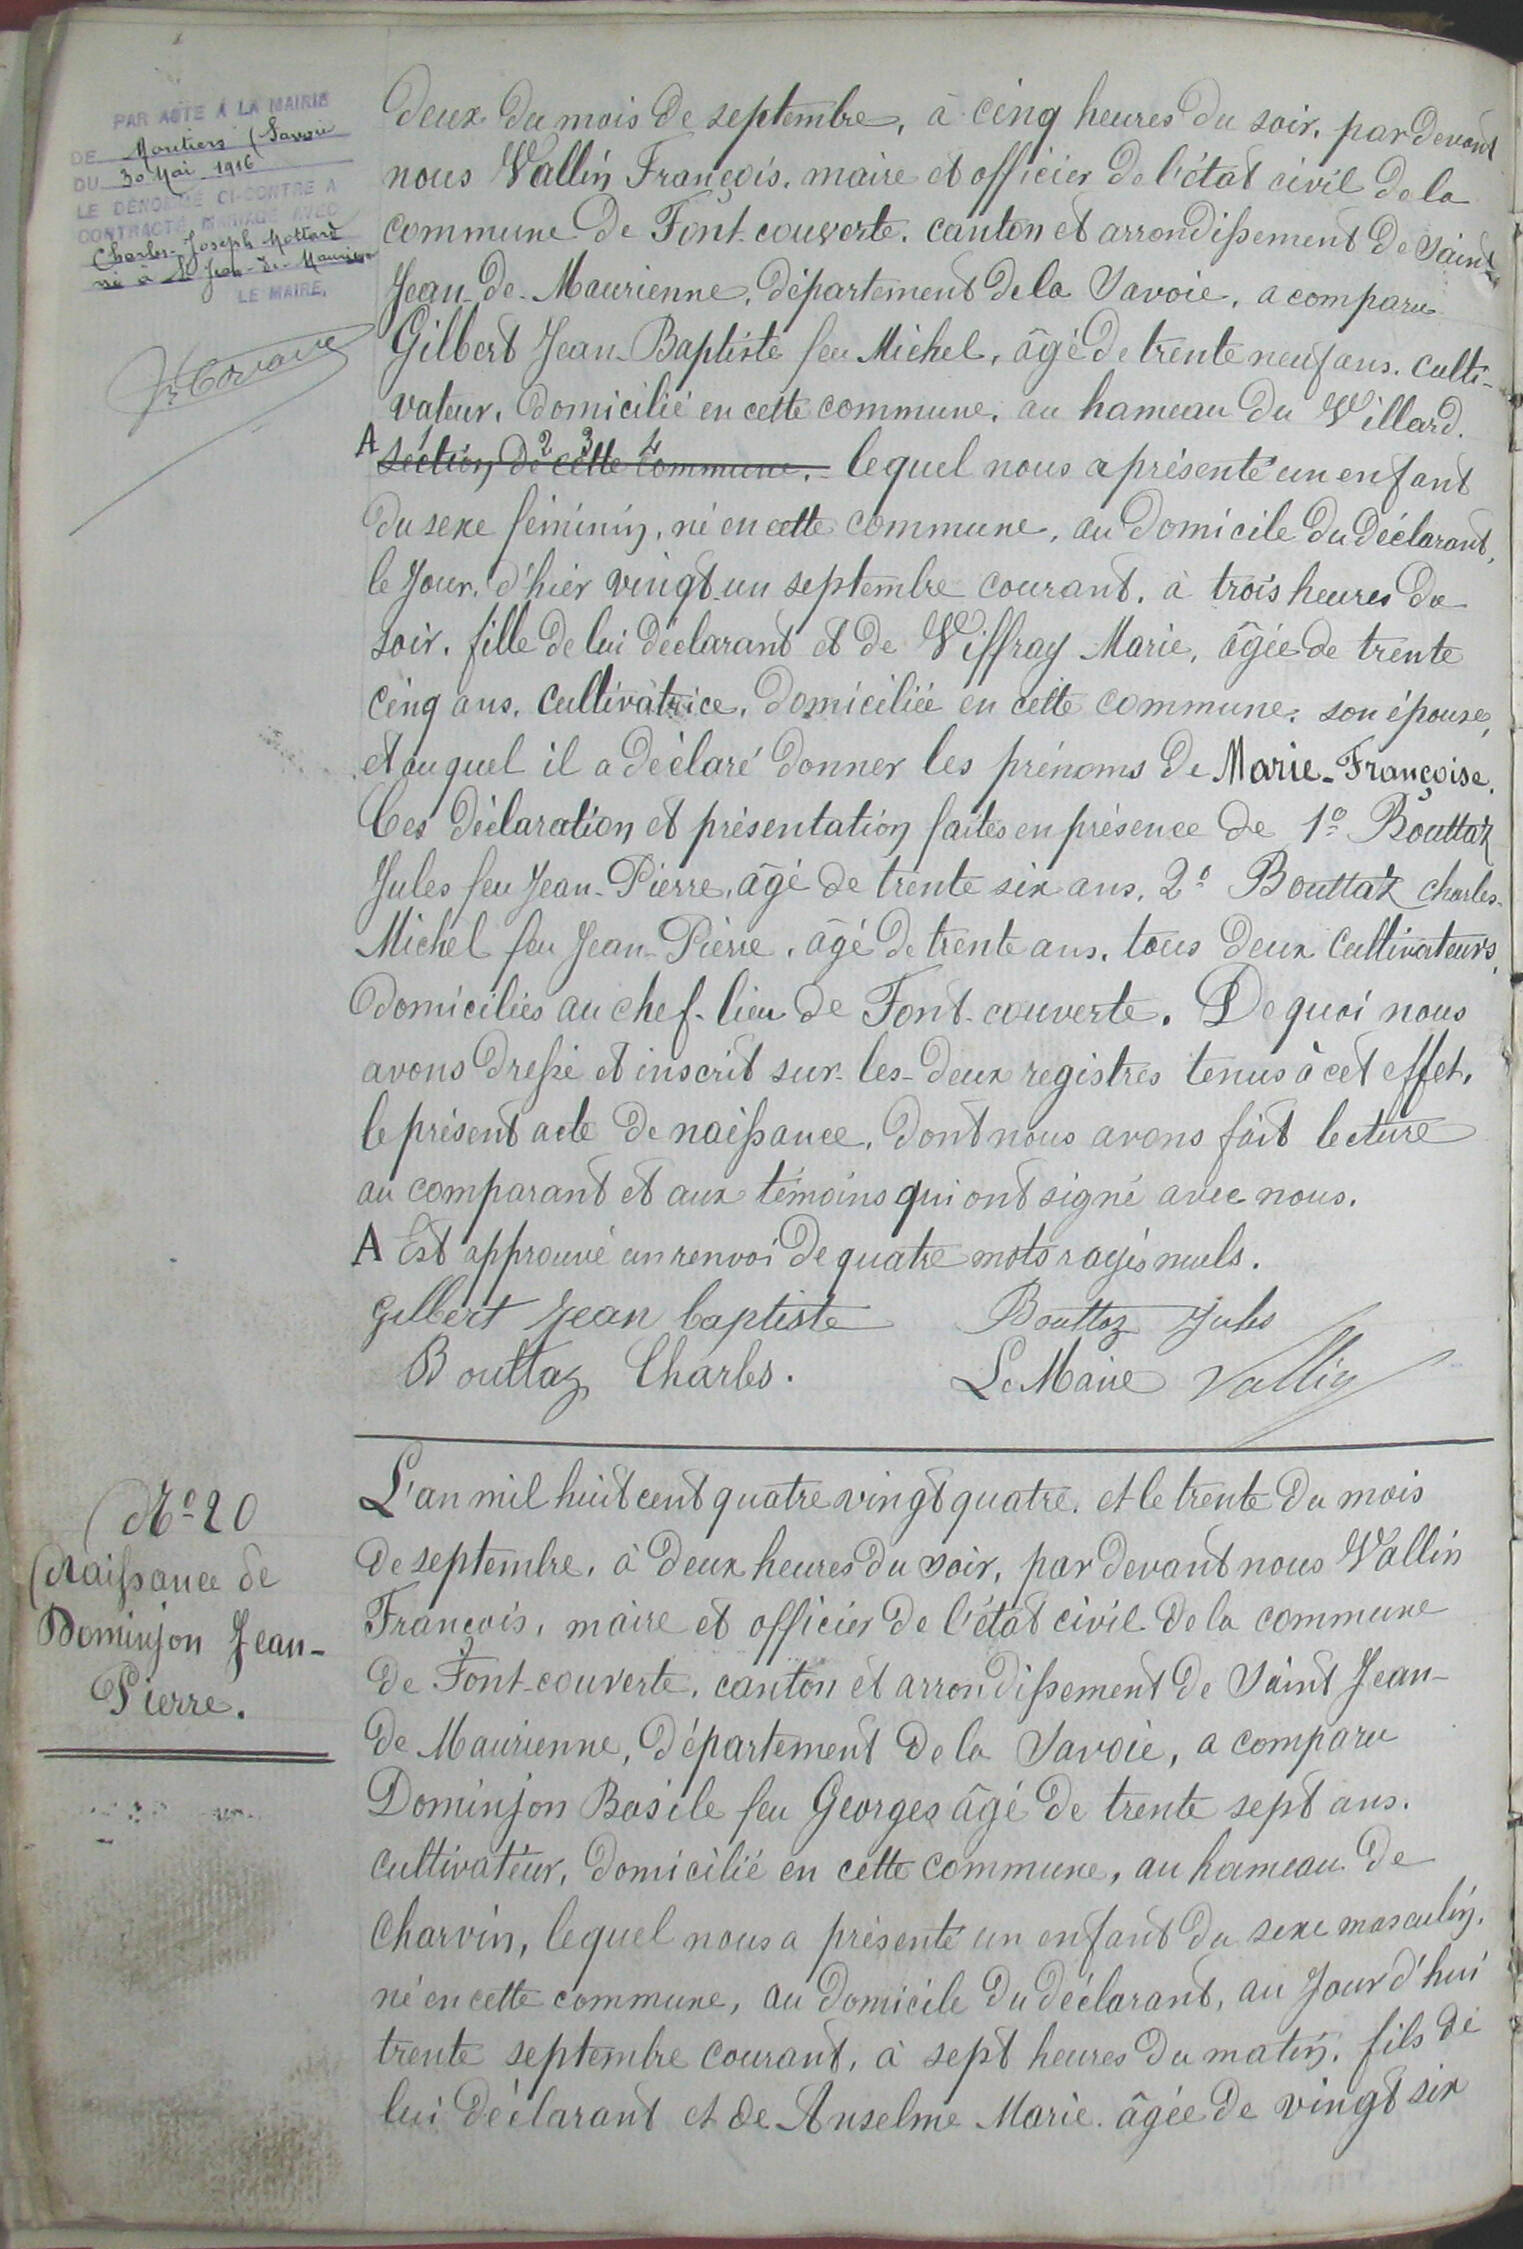 PAR ACTE À LA MAIRIE
DE Moutiers (Savoie
DU 30 Mai 1916
LE DÉNOMMÉ CI-CONTRE A
CONTRACTÉ MARIAGE AVEC
Charles-Joseph Mottard
né à St Jean-de-Maurienne
LE MAIRE,
deux du mois de septembre, à cinq heures du soir, par devant
nous Vallin François, maire et officier de l'état civil de la
commune de Font-couverte, canton et arrondissement de Saint-
Jean-de-Maurienne, département de la Savoie, a comparu
Gilbert Jean-Baptiste feu Michel, âgé de trente neuf ans, culti-
vateur, domicilié en cette commune, au hameau du Villard.
A section de cette commune, lequel nous a présenté un enfant
1 2 3 4
du sexe féminin, né en cette commune, au domicile du déclarant,
le jour d'hier vingt-un septembre courant, à trois heures du
soir, fille de lui déclarant et de Viffray Marie, âgée de trente
cinq ans, cultivatrice, domiciliée en cette commune, son épouse,
et auquel il a déclaré donner les prénoms de Marie-Françoise.
Ces déclaration et présentation faites en présence de 1º Bouttaz
Jules feu Jean-Pierre, âgé de trente six ans, 2º Bouttaz Charles-
Michel feu Jean-Pierre, âgé de trente ans, tous deux cultivateurs,
domiciliés au chef-lieu de Font-couverte. De quoi nous
avons dressé et inscrit sur-les-deux registres tenus à cet effet,
le présent acte de naissance, dont nous avons fait lecture
au comparant et aux témoins qui ont signé avec nous.
A Est approuvé un renvoi de quatre mots rayés nuls.
Gilbert Jean baptiste Bouttaz Jules
Bouttaz Charles. Le Maire Vallin
Nº 20
Naissance de
Dominjon Jean-
Pierre.
L'an mil huit cent quatre vingt quatre, et le trente du mois
de septembre, à deux heures du soir, par devant nous Vallin
François, maire et officier de l'état civil de la commune
de Font-couverte, canton et arrondissement de Saint Jean-
de Maurienne, département de la Savoie, a comparu
Dominjon Basile feu Georges âgé de trente sept ans,
cultivateur, domicilié en cette commune, au hameau de
Charvin, lequel nous a présenté un enfant du sexe masculin,
né en cette commune, au domicile du déclarant, au Jour d'hui
trente septembre courant, à sept heures du matin, fils de
lui déclarant et de Anselme Marie, âgée de vingt six